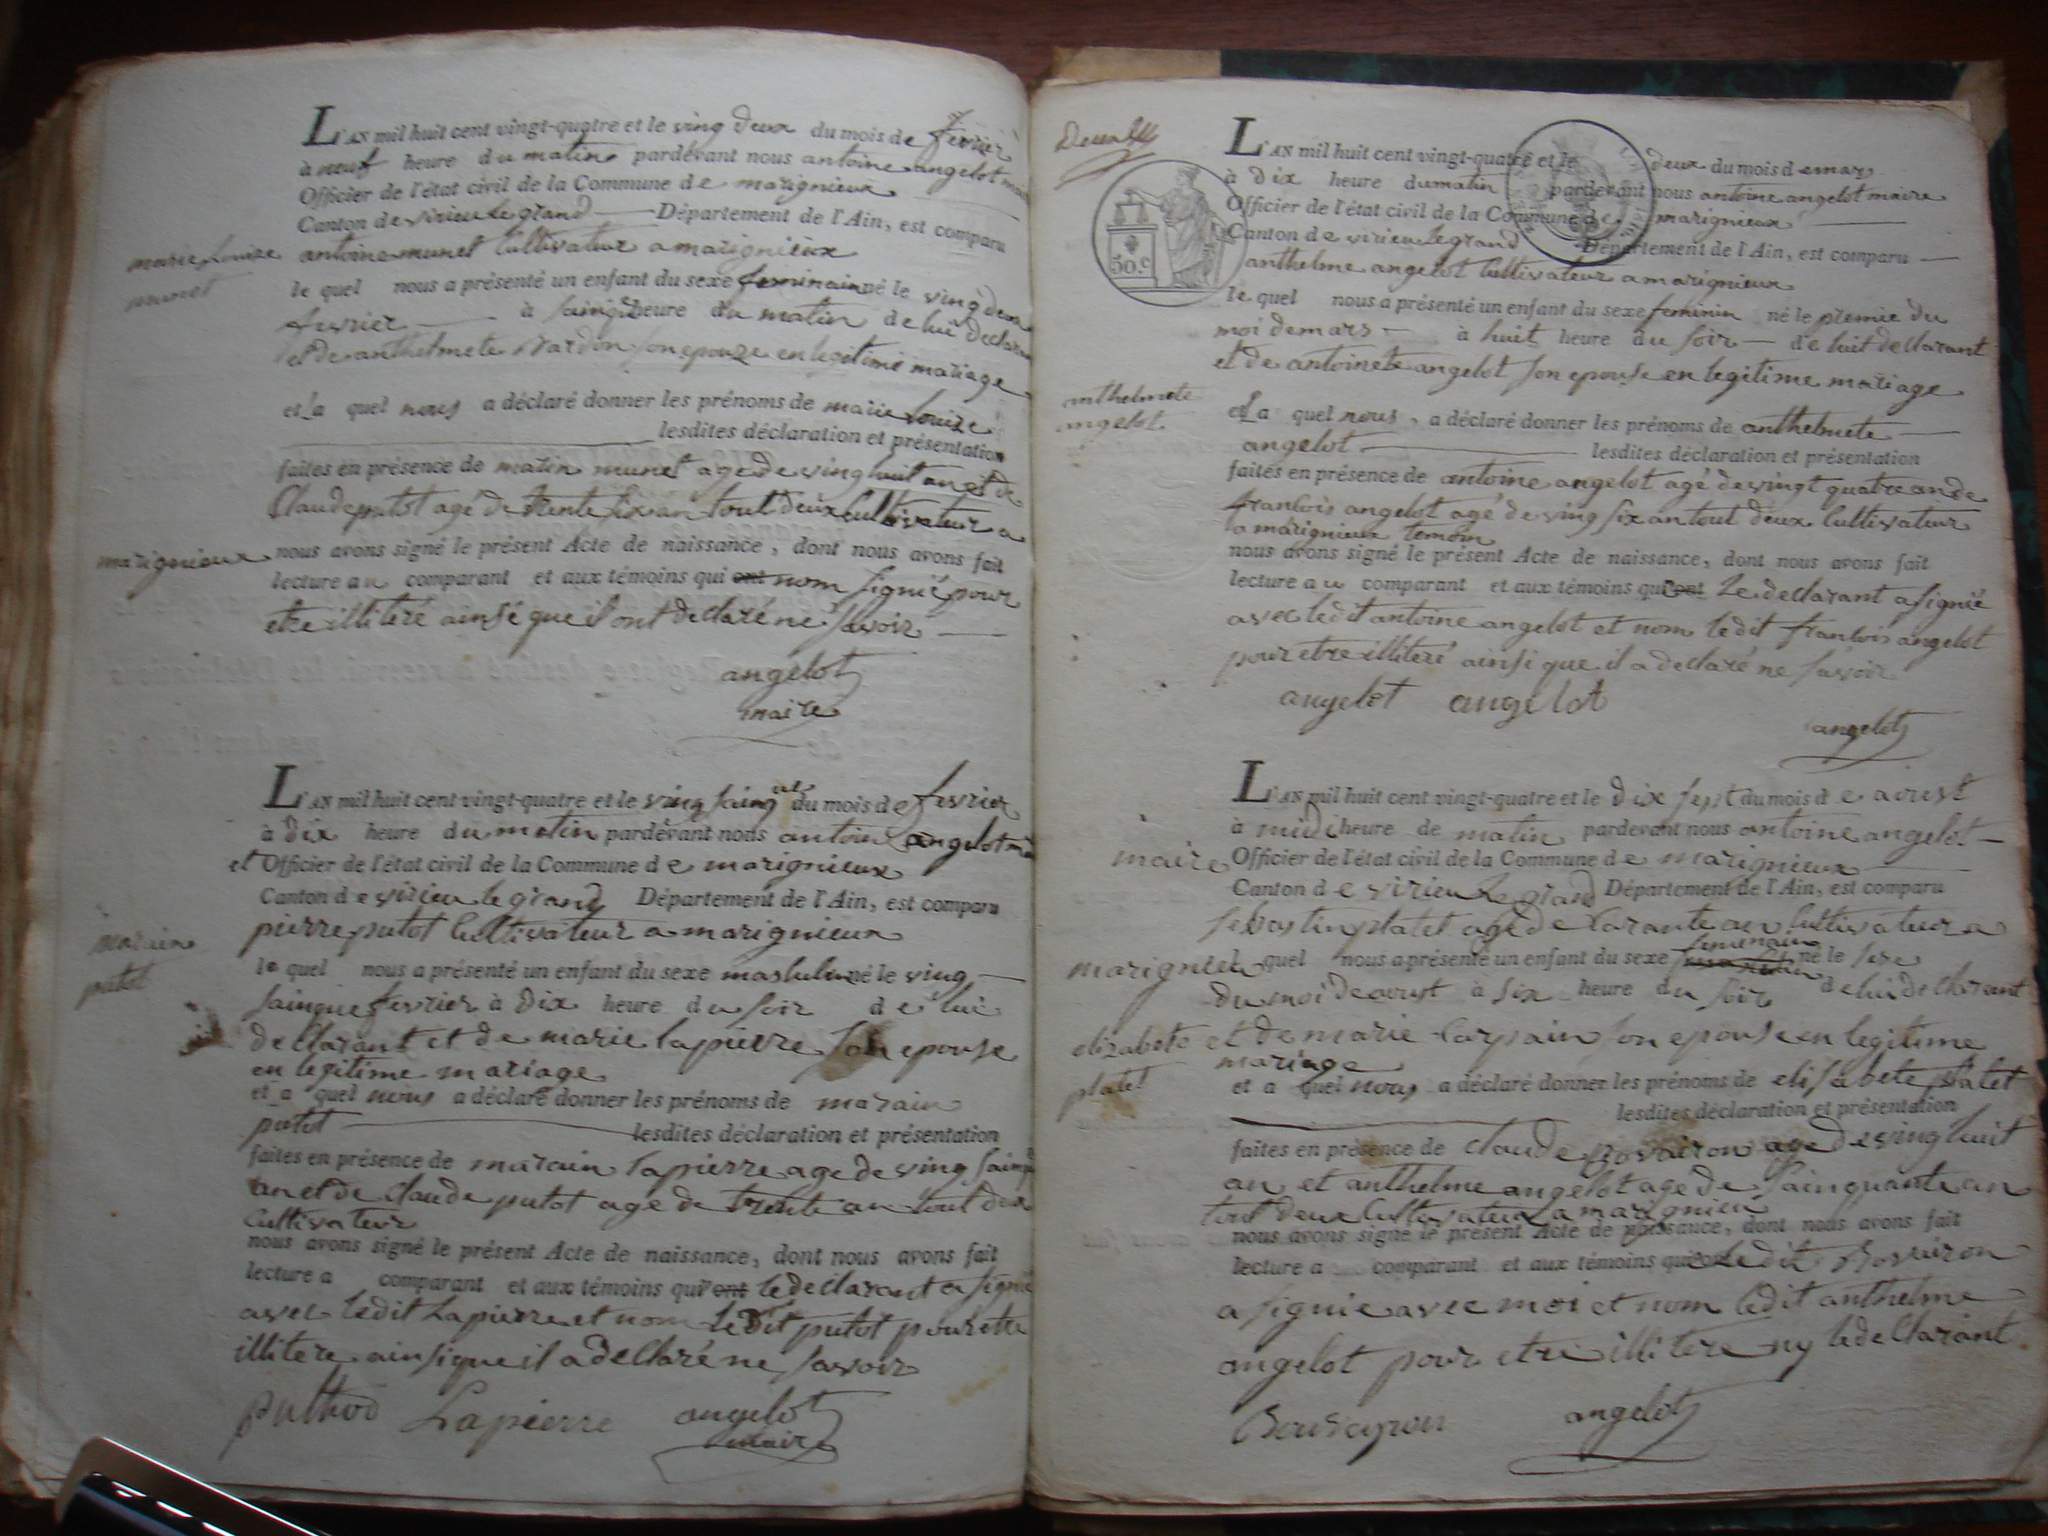 L'AN mil huit cent vingt-quatre et le ving deux du mois de fevrier
à neuf heure du matin pardevant nous antoine angelot maire
Officier de l'état civil de la Commune de marignieux
Canton de virieu le grand Département de l'Ain, est comparu
antoine munet Cultivateur a marignieux
marie Louize
munet
le quel nous a présenté un enfant du sexe feminain né le ving deux
fevrier à sainq heure du matin de lui declarant
et de anthelmete Bardon son epouze en legitime mariage
et a quel nous a déclaré donner les prénoms de marie Louize
lesdites déclaration et présentation
faites en présence de matin munet age de ving huit an et de
Claude putot agé de trente six an tout deux cultivateur a
marignieux
nous avons signé le présent Acte de naissance, dont nous avons fait
lecture au comparant et aux témoins qui ont nom signié pour
etre illiteré ainsé que il ont declaré ne savoir
angelot
maire
L'AN mil huit cent vingt-quatre et le ving sainq du mois de fevrier
à dix heure du matin pardevant nous antoine angelot maire
et Officier de l'état civil de la Commune de marignieux
Canton de virieu le grand Département de l'Ain, est comparu
pierre putot Cultivateur a marignieux
marain
putot
le quel nous a présenté un enfant du sexe maskulin né le ving
sainque fevrier à dix heure du soir de lui
declarant et de marie lapierre son epouse
en legitime mariage
et a quel nous a déclaré donner les prénoms de marain
putot lesdites déclaration et présentation
faites en présence de marain lapierre age de ving sainq
an et de Claude putot age de trente an tout deux
Cultivateur
nous avons signé le présent Acte de naissance, dont nous avons fait
lecture a comparant et aux témoins qui ont le declarant a signié
avec ledit Lapierre et nom ledit putot pour etre
illitere ainsi que il a declaré ne savoir
puthod Lapierre angelot
maire
L'AN mil huit cent vingt-quatre et le deux du mois de mars
à dix heure du matin pardevant nous antoine angelot maire
Officier de l'état civil de la Commune de marignieux
Canton de virieu le grand Département de l'Ain, est comparu
50.c
anthelme angelot Cultivateur a marignieux
le quel nous a présenté un enfant du sexe feminin né le premie du
moi de mars à huit heure du soir de luit declarant
et de antoinete angelot son epouse en legitime mariage
anthelmete
angelot
et a quel nous, a déclaré donner les prénoms de anthelmete
angelot lesdites déclaration et présentation
faites en présence de antoine angelot agé de vingt quatre an de
francois angelot agé de ving six an tout deux Cultivateur
a marignieux temoin
nous avons signé le présent Acte de naissance, dont nous avons fait
lecture au comparant et aux témoins qui ont Le declarant a signié
avec ledit antoine angelot et nom ledit francois angelot
pour etre illiteré ainsi que il a declaré ne savoir
angelot angelot
angelot
L'AN mil huit cent vingt-quatre et le dix sept du mois de aoust
à midi heure de matin pardevant nous antoine angelot
maire Officier de l'état civil de la Commune de marignieux
Canton de virieu le grand Département de l'Ain, est comparu
sebastin platet age de Carante an Cultivateur a
marignieu l quel nous a présenté un enfant du sexe femenain né le sese
du moi de aoust à six heure du soir de lui declarant
elizabete
platet
et de marie Carpain son epouse en legitime
mariage
et a quel nous a déclaré donner les prénoms de elisabete platet
lesdites déclaration et présentation
faites en présence de Claude Bovairon age de ving huit
an et anthelme angelot age de sainquante an
tout deux Cultivateur a marignieu
nous avons signé le présent Acte de naissance, dont nous avons fait
lecture a comparant et aux témoins qui ont Ledit Bovairon
a signie avec moi et nom ledit anthelme
angelot pour etre illitere ny le declarant
angelot